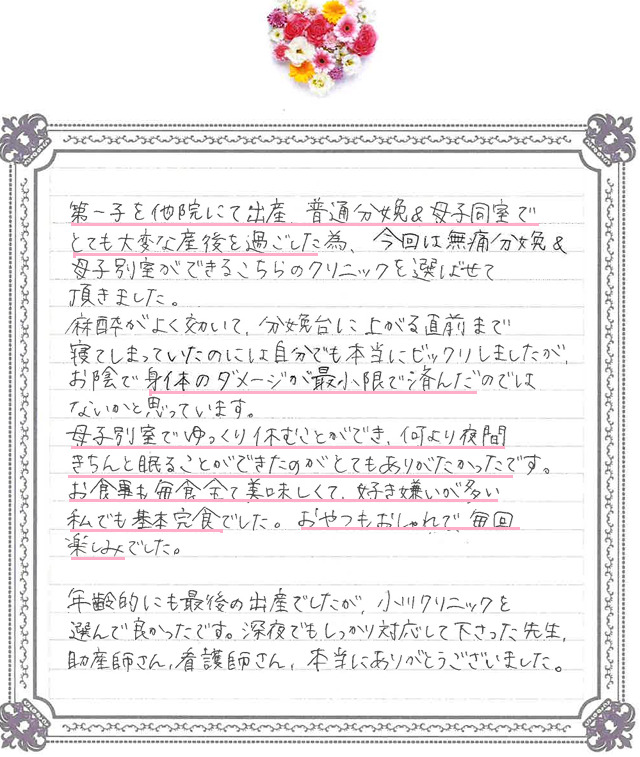 第一子を他院にて出産、普通分娩&母子同室で
とても大変な産後を過ごした為、今回は無痛分娩&
母子別室ができるこちらのクリニックを選ばせて
頂きました。
麻酔がよく効いて、分娩台に上がる直前まで
寝てしまっていたのには自分でも本当にビックリしましたが、
お陰で身体のダメージが最小限で済んだのでは
ないかと思っています。
母子別室でゆっくり休むことができ、何より夜間
きちんと眠ることができたのがとてもありがたかったです。
お食事も毎食全て美味しくて、好き嫌いが多い
私でも基本完食でした。おやつもおしゃれで毎回
楽しみでした。
年齢的にも最後の出産でしたが、小川クリニックを
選んで良かったです。深夜でもしっかり対応して下さった先生、
助産師さん、看護師さん、本当にありがとうございました。